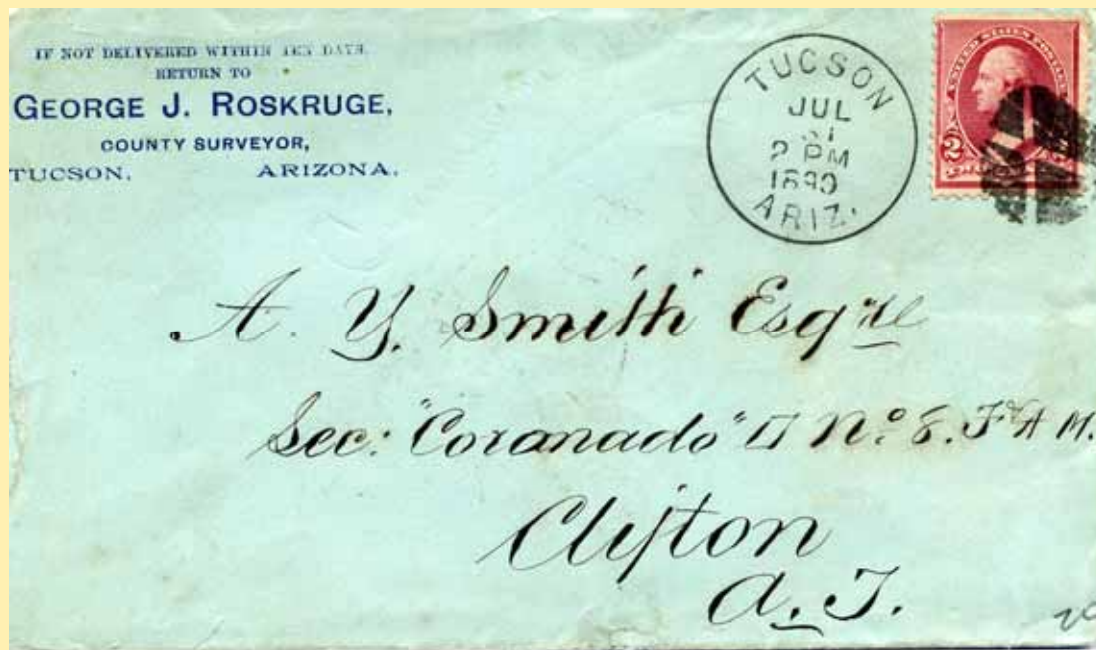 IF NOT DELIVERED WITHIN TEN DAYS,
RETURN TO
GEORGE J. ROSKRUGE,
COUNTY SURVEYOR,
TUCSON, ARIZONA.
TUCSON
JUL
31
2 PM
1890
ARIZ.
UNITED STATES POSTAGE
2
A. Y. Smith Esqre
Sec: "Coranado" No. 8. F&AM.
Clifton
A. T.